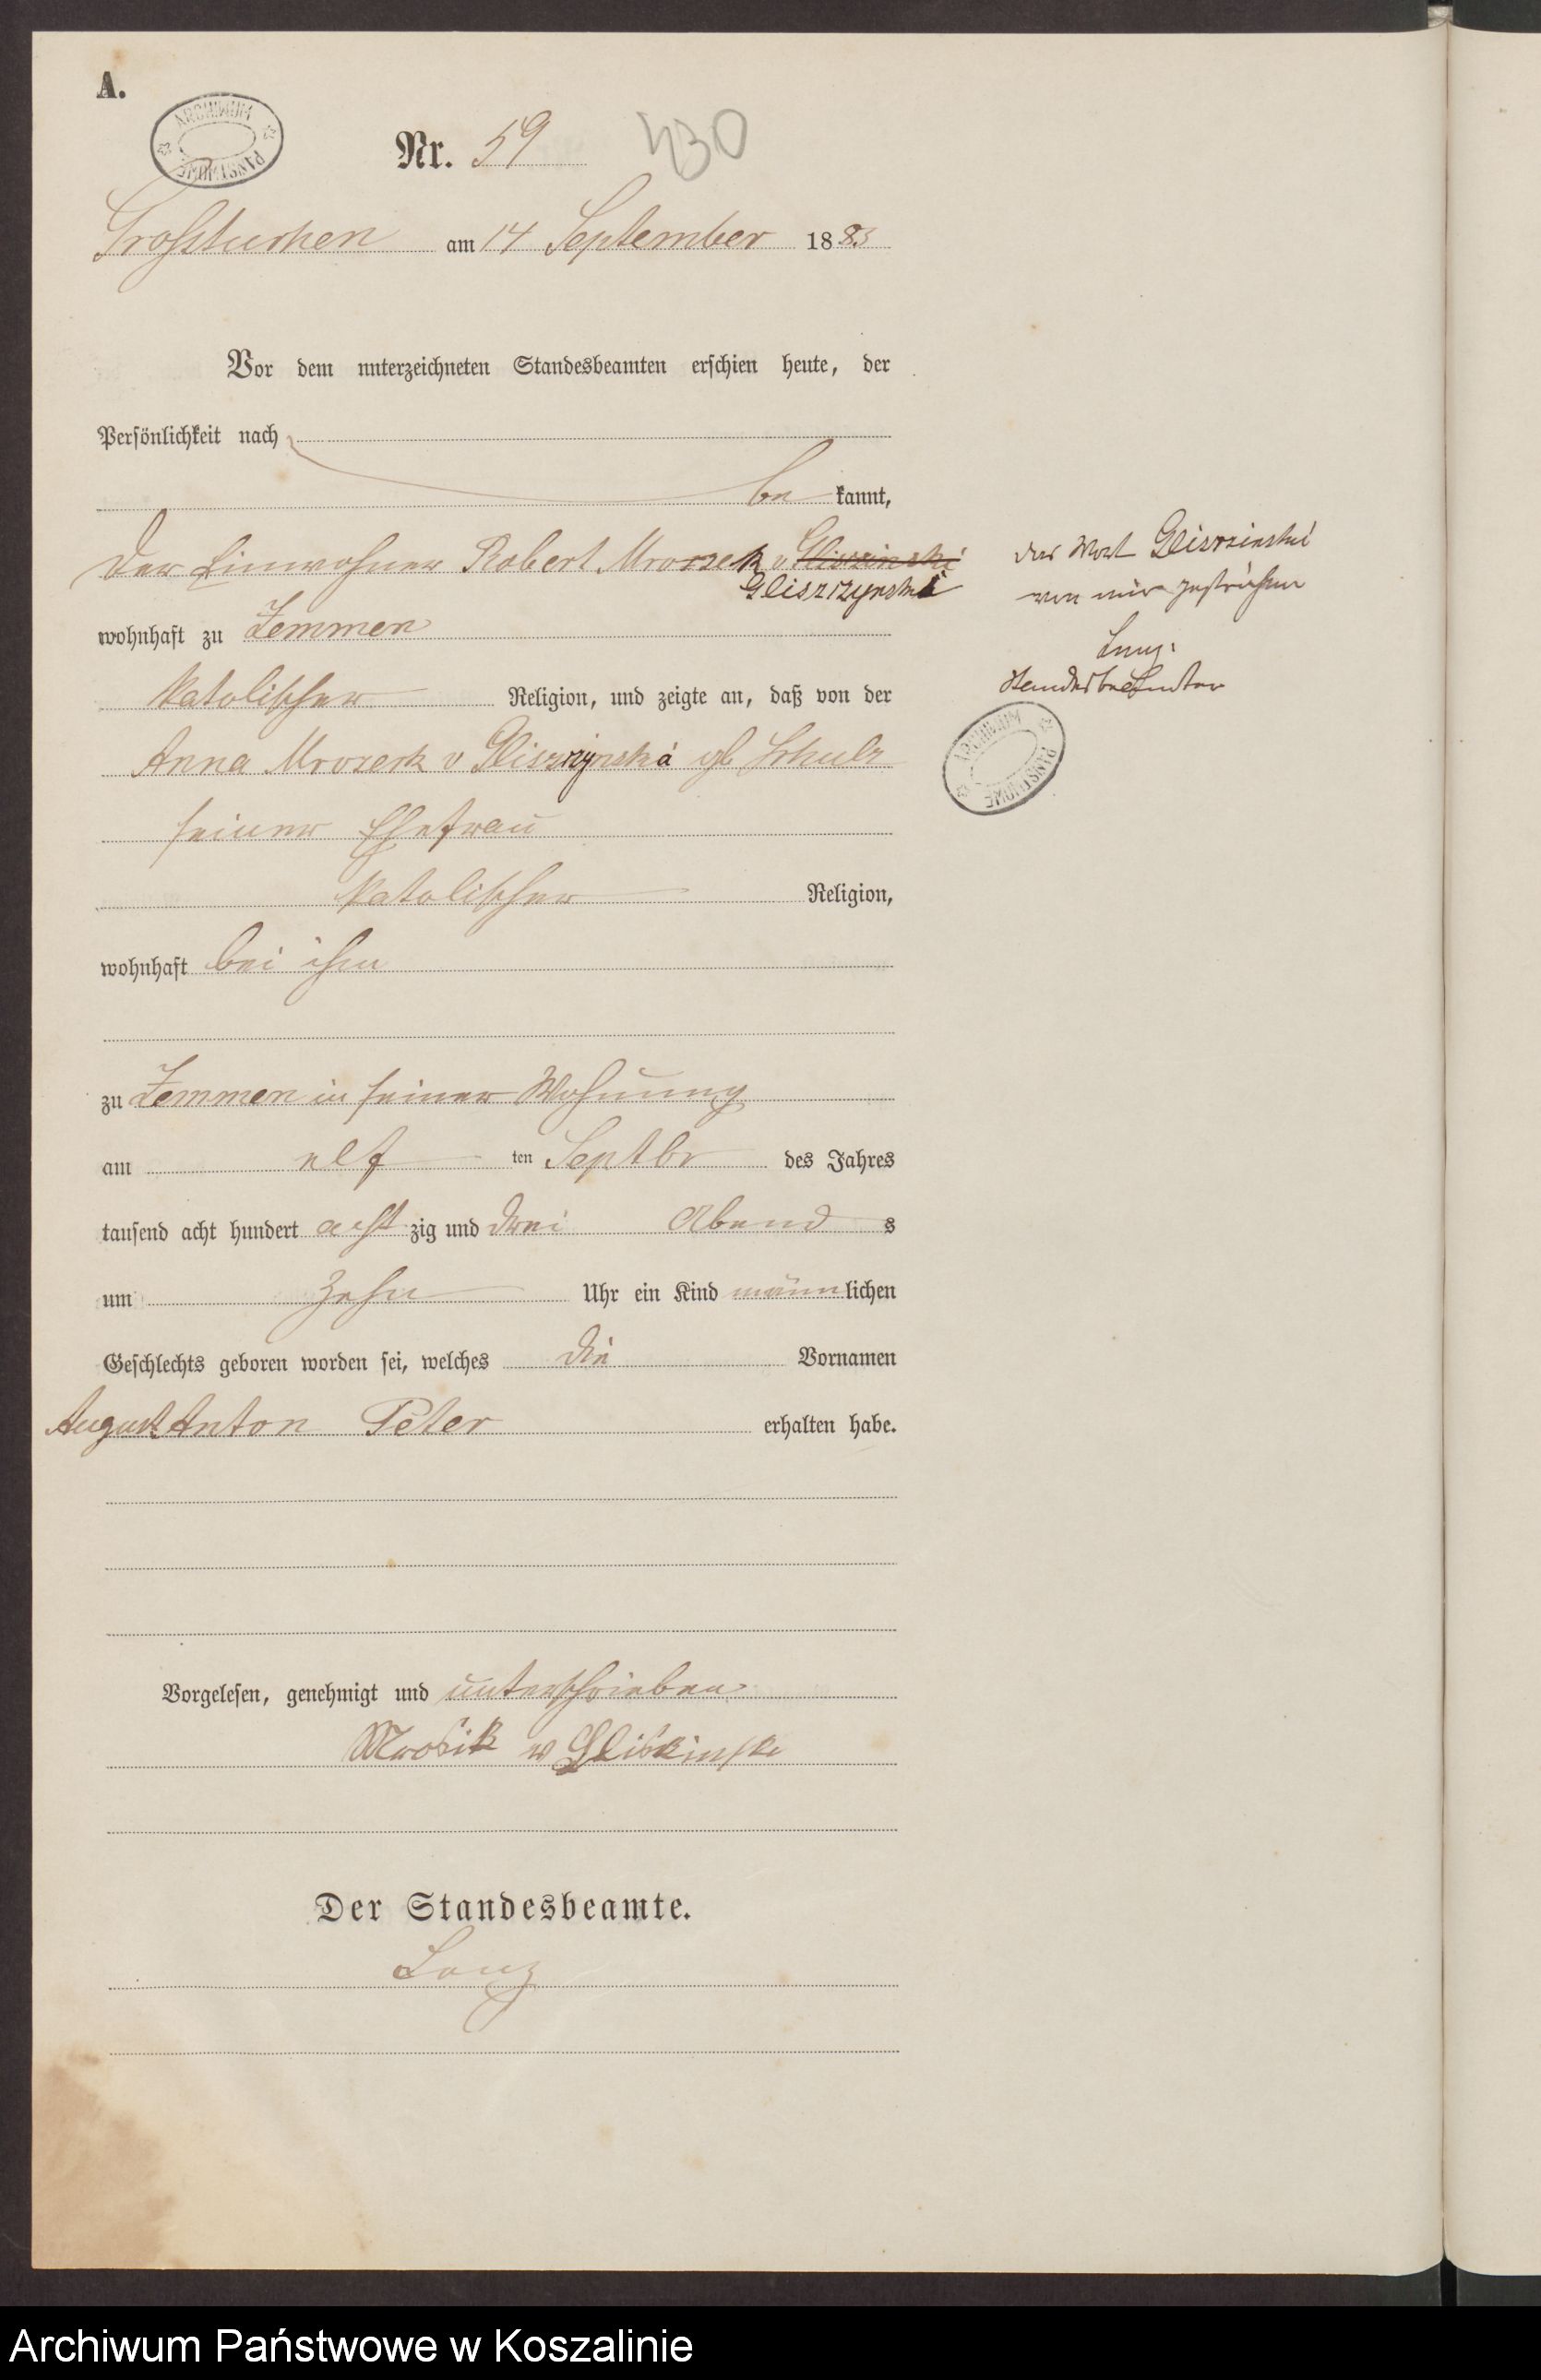 A.
ARCHIWUM PAŃSTWOWE
Nr. 59 430
Großtuchen am 14 September 1883
Vor dem unterzeichneten Standesbeamten erschien heute, der
Persönlichkeit nach
be kannt,
der Einwohner Robert Mrozek v Gliszinski
Gliszczynski
wohnhaft zu Zemmen
katolischer Religion, und zeigte an, daß von der
Anna Mrozek v Gliszczynska gb Schulz
seiner Ehefrau
katolischer Religion,
wohnhaft bei ihm
zu Zemmen in seiner Wohnung
am elf ten Septbr des Jahres
tausend acht hundert acht zig und drei Abend s
um zehn Uhr ein Kind männlichen
Geschlechts geboren worden sei, welches die Vornamen
August Anton Peter erhalten habe.
Vorgelesen, genehmigt und unterschrieben
Mrosik v Gliskinski
Der Standesbeamte.
Lanz
das Wort Gliszinski
von mir gestrichen
Lanz.
Standesbeamter
ARCHIWUM PAŃSTWOWE
Archiwum Państwowe w Koszalinie